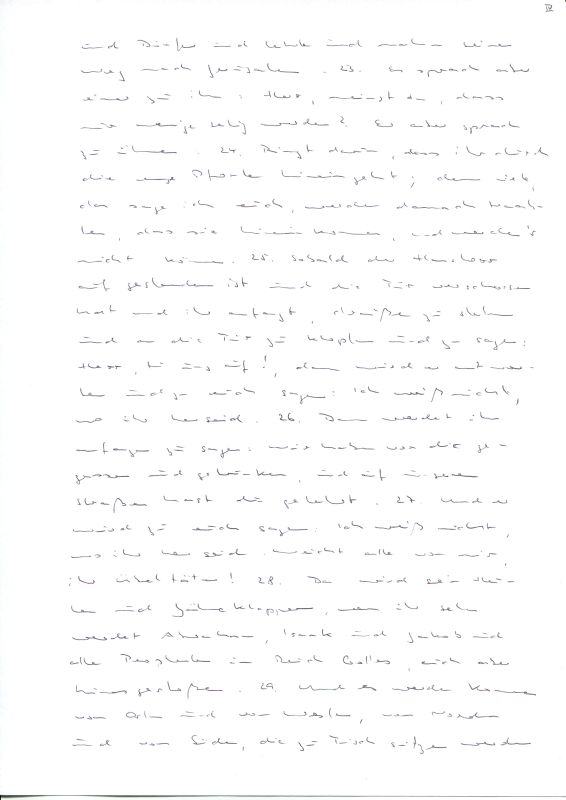 IV
und Dörfer und lehrte und nahm seinen
Weg nach Jerusalem. 23. Es sprach aber
einer zu ihm: Herr, meinst du, dass
nur wenige selig werden? Er aber sprach
zu ihnen. 24. Ringt darum, dass ihr durch
die enge Pforte hineingeht; denn viele,
das sage ich euch, werden danach trach-
ten, dass sie hineinkommen, und werden's
nicht können. 25. Sobald der Hausherr
aufgestanden ist und die Tür verschlossen
hat und ihr anfangt, draußen zu stehen
und an die Tür zu klopfen und zu sagen:
Herr, tu uns auf!, dann wird er antwor-
ten und zu euch sagen: Ich weiß nicht,
wo ihr her seid. 26. Dann werdet ihr
anfangen zu sagen: wir haben vor dir ge-
gessen und getrunken, und auf unseren
Straßen hast du gelehrt. 27. Und er
wird zu euch sagen: Ich weiß nicht,
wo ihr her seid. weicht alle von mir,
ihr Übeltäter! 28. Da wird sein Heu-
len und Zähneklappern, wenn ihr sehen
werdet Abraham, Isaak und Jakob und
alle Propheten im Reich Gottes, euch aber
hinausgestoßen. 29. Und es werden kommen
von Osten und von Westen, von Norden
und von Süden, die zu Tisch sitzen werden